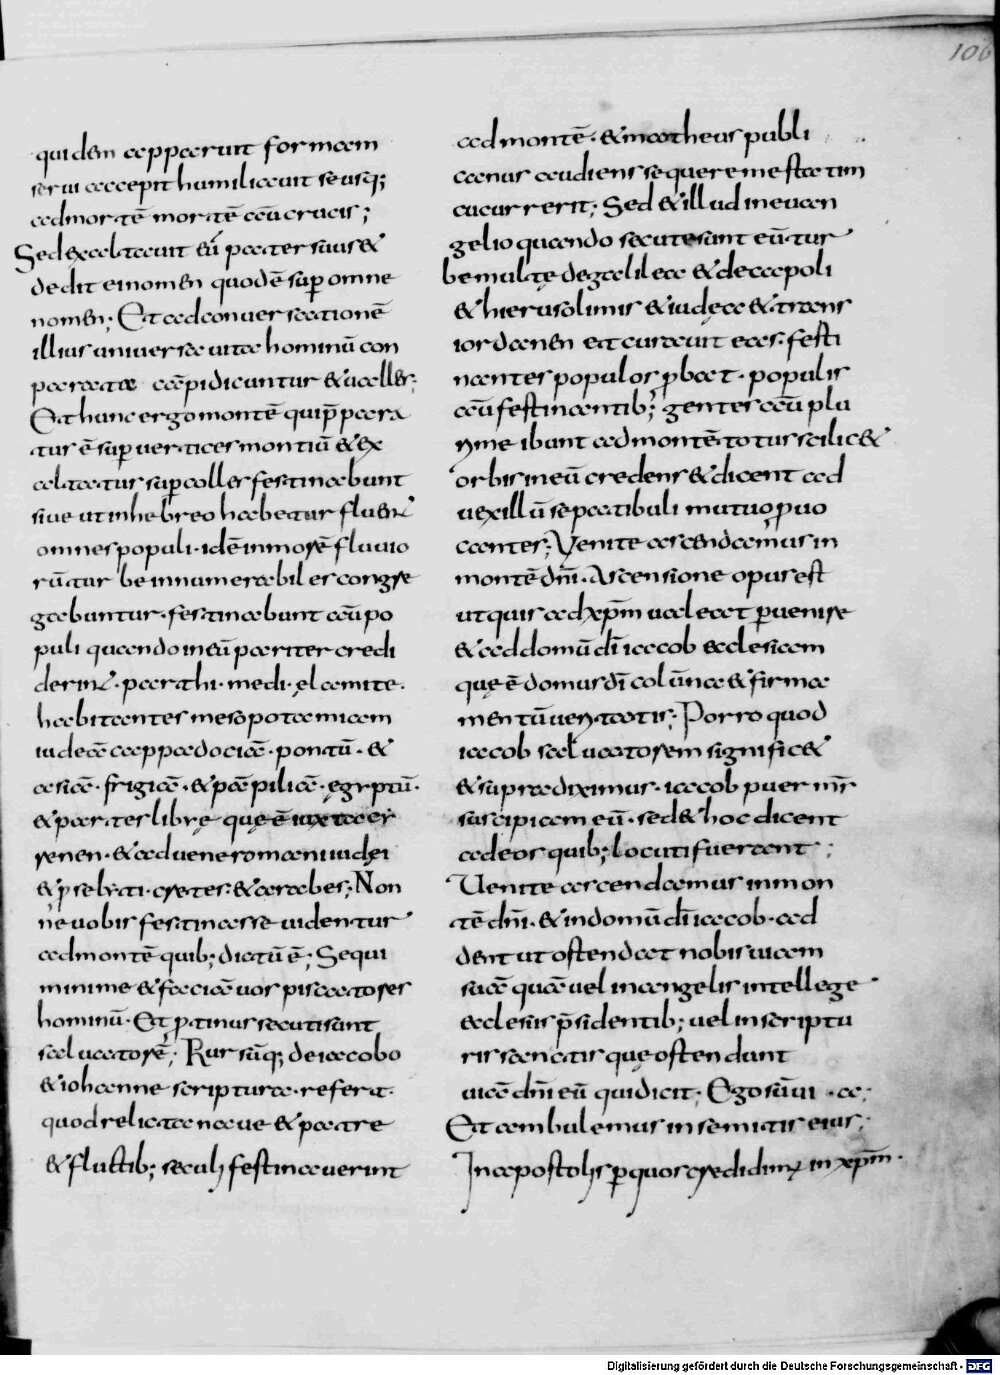 106
quidem apparuit formam
serui accepit humiliauit se usq;
admortē mortē aūt crucis;
Sed exaltauit eū pater suus &
dedit ei nomen quodē sup omne
nomen; Et ad conuersationē
illius uniuersa uita hominū con
parata cāpi dicuntur & ualles;
Et hunc ergo montē qui p̄para
tus ē sup uertices montiū & ex
altatus sup colles festinabunt
siue ut in hebreo habetur fluent
omnes populi · idē in morē fluuio
rū turbe innumerabiles congre
gabuntur · festinabunt aūt po
puli quando in eū pariter credi
derint · parthi · medi · ęlamite ·
habitantes mesopotamiam
iudeā cappadociā · pontū · &
asiā · frigiā · & pāpiliā · ęgyptū ·
& partes libyę quę ē iuxta cy
renen · & aduene romani iudei
& pselyti · cretes · & arabes; Non
ne uobis festinasse uidentur
ad montē quib; dictū ē; Sequi
mini me & faciā uos piscatores
hominū · Et ptinus secuti sunt
saluatorē; Rursūq; de iacobo
& iohanne scriptura · refert ·
quod relicta naue & patre
& fluctib; seculi festinauerint
ad montē · & matheus publi
canus audiens sequere me statim
cucurrerit; Sed & illud in euan
gelio quando secute sunt eū tur
be multę de galilea & decapoli
& hierusolimis & iudęa & trans
iordanen et curauit eas · festi
nantes populos pbat · populis
aūt festinantib; gentes aūt plu
rime ibunt ad montē totus scilic&
orbis in eū credens & dicent ad
uexillū se patibuli mutuo puo
cantes; Venite ascendamus in
montē dn̄i · Ascensione opus est
ut quis ad xpm̄ ualeat peruenire
& ad domū dī iacob ecclesiam
quę ē domus dī colūna & firma
mentū ueritatis; Porro quod
iacob saluatorem signific&
& supra diximus · iacob puer ms̄
suscipiam eū · sed & hoc dicent
ad eos quib; locuti fuerant;
Uenite ascendamus in mon
tē dn̄i · & in domū dī iacob · ad
dent ut ostendat nobis uiam
suā quā uel in angelis intellege
ecclesiis p̄sidentib; uel in scriptu
ris sanctis quę ostendunt
uiā dn̄i eū qui dicit; Ego sū ui · a;
Et ambulemus in semitis eius;
In apostolis p quos credidim; in xpm̄ ·
Digitalisierung gefördert durch die Deutsche Forschungsgemeinschaft - DFG